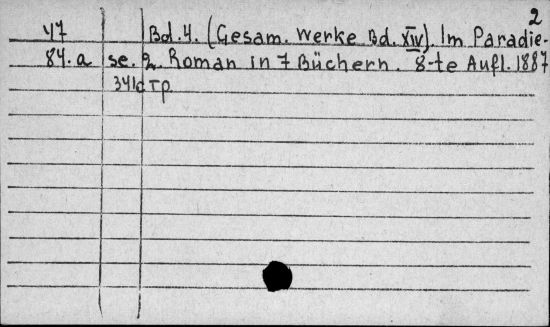 2
47 Bd. 4. (Gesam. Werke Bd. XIV). Im Paradie-
84.a se. 2. Roman in 7 Büchern. 8-te Aufl. 1887
341d Tp.